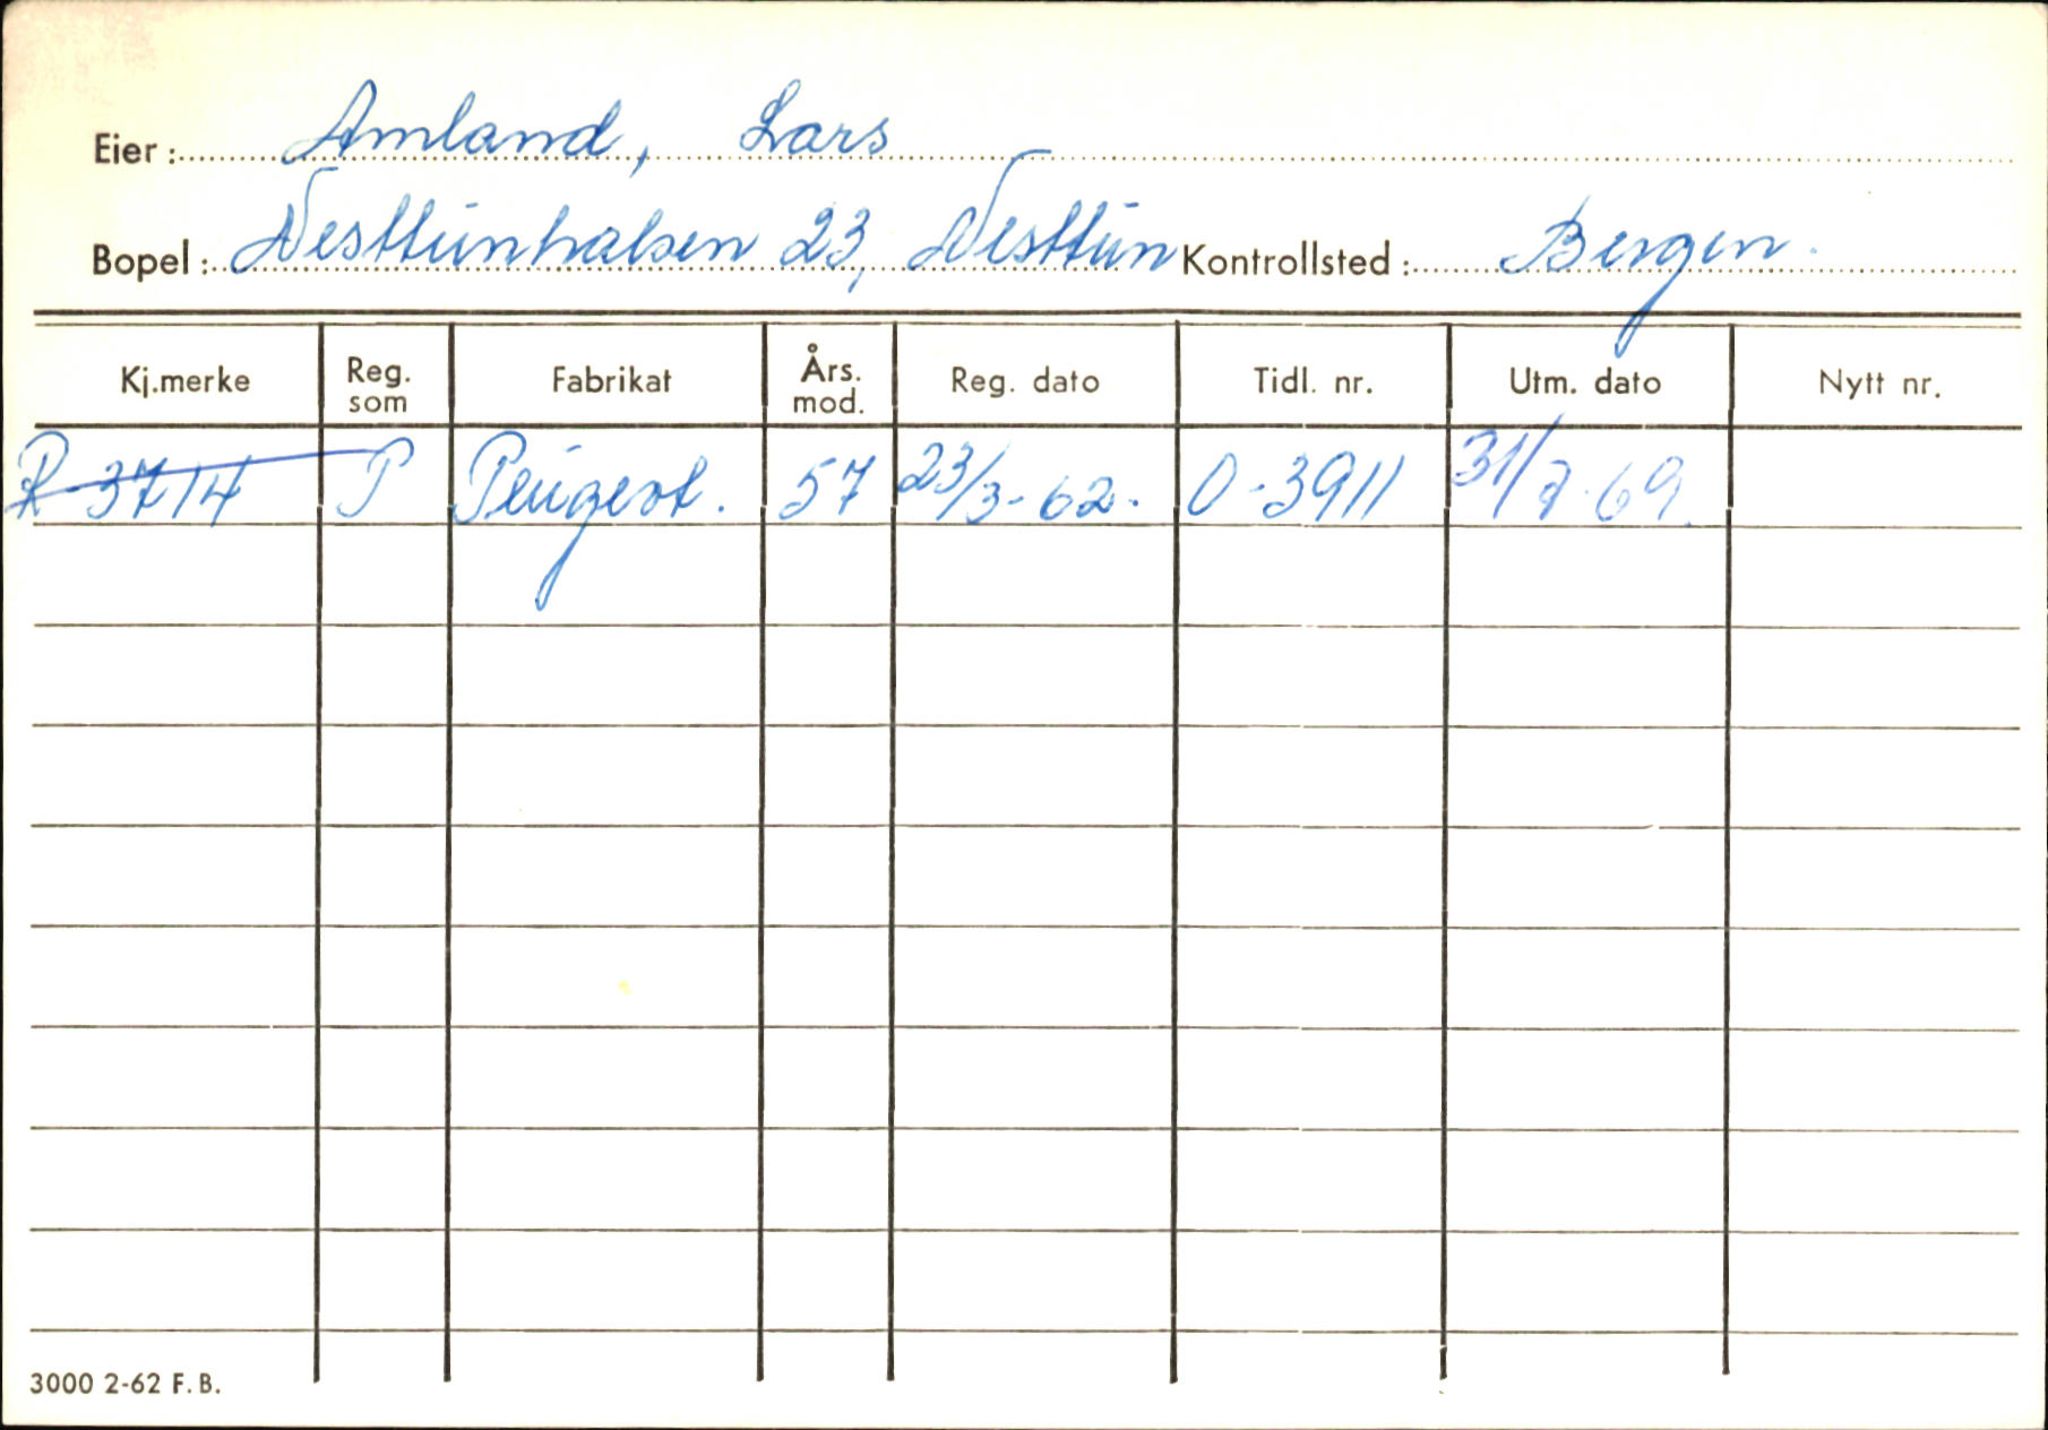 Eier: Amland, Lars
Bopel: Nesttunhalsen 23, Nesttun Kontrollsted: Bergen.
Kj.merke Reg. som Fabrikat Års. mod. Reg. dato Tidl. nr. Utm. dato Nytt nr.
R-3714 P Peugeot. 57 23/3-62. O-3911 31/7-69.
3000 2-62 F.B.